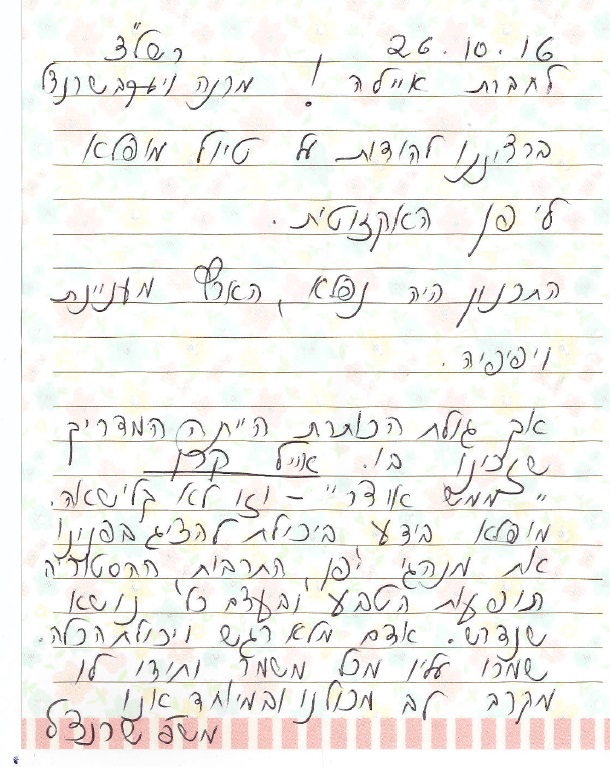 26.10.16 רשל"צ
לחברת איילה ! מרנה ויעקב שרנדל
ברצוננו להודות על טיול מופלא
ליפן האקזוטית.
התכנון היה נפלא, הארץ מעניינת
ויפיפיה.
אך גולת הכותרת הייתה המדריך
שזכינו בו. אייל קרן
"ממש אוצר" - וזו לא קלישאה.
מופלא בידע ביכולת להציג בפנינו
את מנהגי יפן, התרבות, ההסטוריה
תופעות הטבע ובעצם כל נושא
שנדרש. אדם מלא רגש ויכולת הכלה.
שמרו עליו מכל משמר ותודו לו
מקרב לב מכולנו ובמיוחד אנו
משפ שרנדל